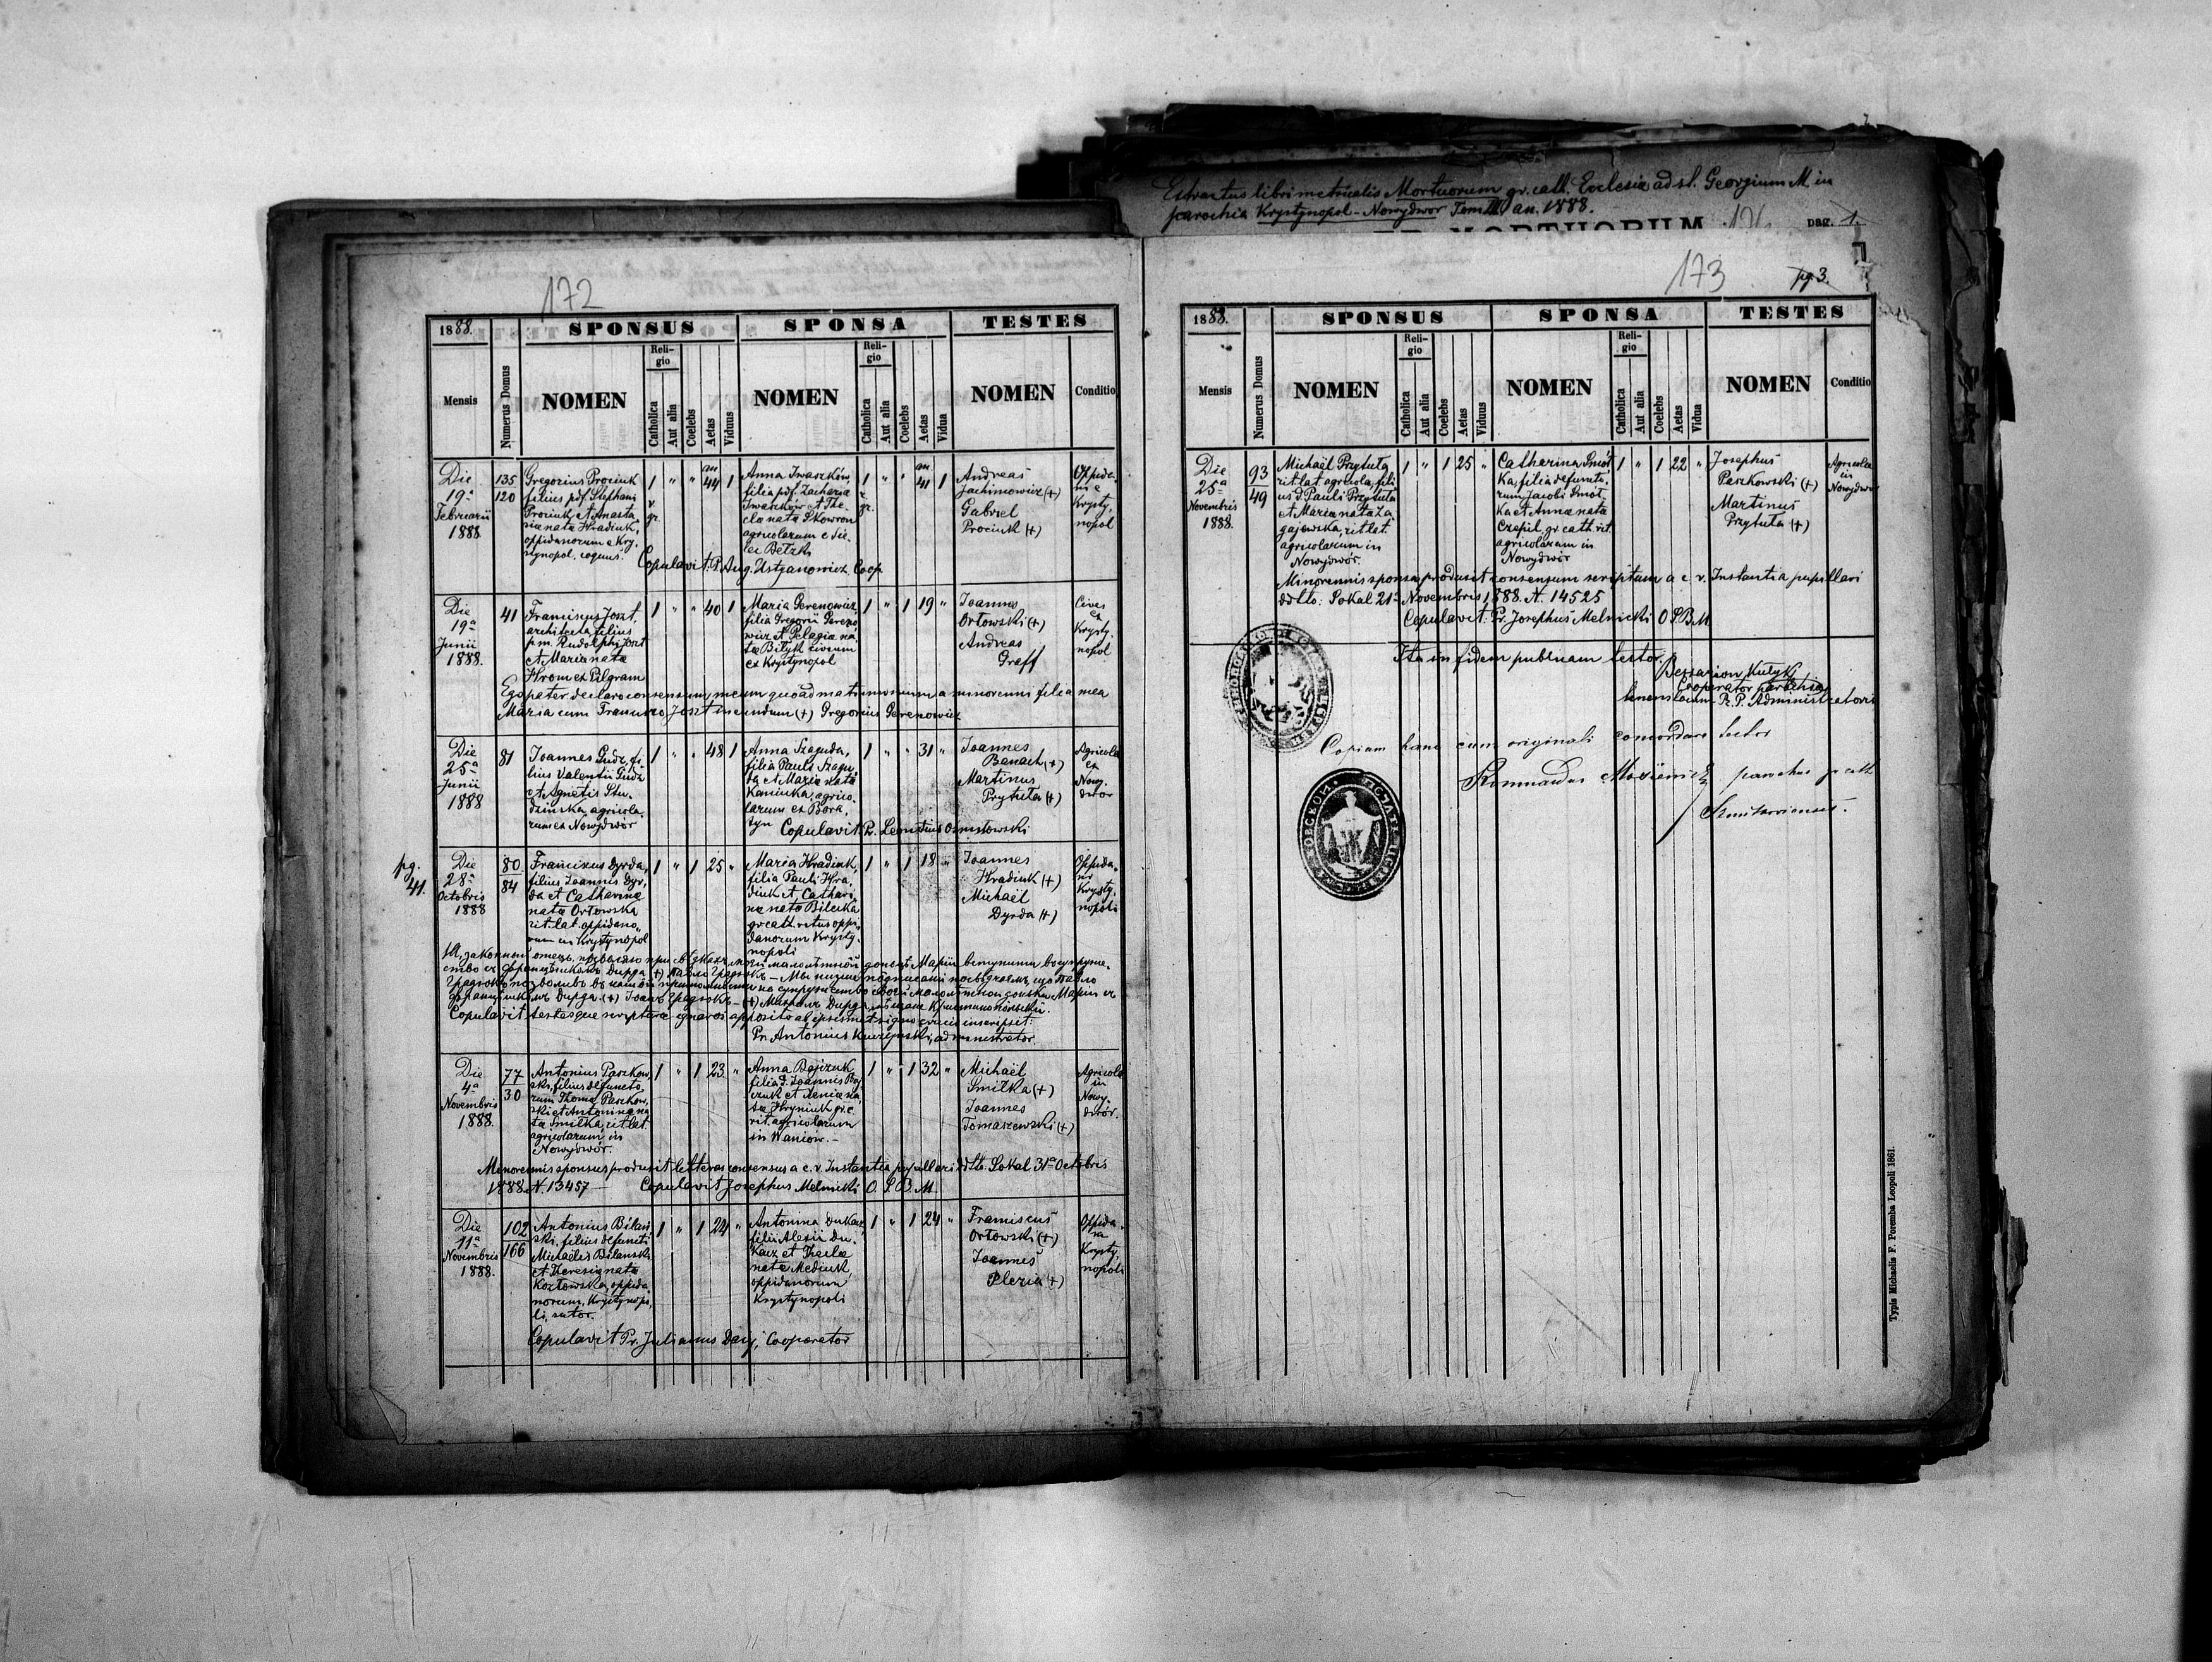 Extractus libri metricalis Mortuorum gr. cath. Ecclesiæ ad st. Georgium M. in
parochia Krystynopol-Nowydwor Tom III an. 1888.
MORTUORUM
pag. 1.
172
1888.
SPONSUS
SPONSA
TESTES
Mensis
Numerus Domus
NOMEN
Religio
Catholica
Aut alia
Coelebs
Aetas
Viduus
NOMEN
Religio
Catholica
Aut alia
Coelebs
Aetas
Vidua
NOMEN
Conditio
Die
19a
Februarii
1888
135
120
Gregorius Prociuk
filius pdf. Stephani
Prociuk et Anasta
siæ nata Hradiuk,
oppidanorum e Kry-
stynopol,
1 r. gr. " " an 44 1
Anna Iwaszków,
filia pdf. Zachariæ
Iwaszków et The-
clæ nata Skowron
agricolarum e Sie-
lec Bełzki
1 r. gr. " " an 41 1
Andreas
Jachimowicz (+)
Gabriel
Prociuk (+)
Oppida-
ni e
Krysty-
nopol
Copulavit: P. Aug. Ustyanowicz Coop
Die
19a
Junii
1888.
41
Franciscus Joszt,
architecta, filius
p.m. Rudolphi Joszt
et Maria nata
Hrom ex Pilgram
1 " " 40 1
Maria Gerenowicz,
filia Gregorii Gereno
wicz et Pelagia na
ta Bilyk civium
ex Krystynopol
1 " 1 19 "
Joannes
Orłowski (+)
Andreas
Graff
Cives
ex
Krysty-
nopol
Ego pater declaro consensum meum quoad matrimonium a minorenni filia mea
Maria cum Francisco Joszt ineundum (+) Gregorius Gerenowicz
Die
25a
Junii
1888
81
Joannes Gudz, fi-
lius Valentii Gudz
et Agnetis Stu-
dzinska, agricola-
rum ex Nowydwór
1 " " 48 1
Anna Szaguda,
filia Pauli Szagu
da et Maria nata
Kaniuka, agrico-
larum ex Bora-
tyn
1 " " 31 "
Joannes
Banach (+)
Martinus
Przytuła (+)
Agricolæ
ex
Nowy-
dwór
Copulavit Pr. Leontius
pg.
41.
Die
28a
Octobris
1888
80
84
Franciscus Dyrda,
filius Joannis Dyr-
da et Catharinæ
nata Orłowska
rit. lat. oppidano-
rum in Krystynopol
1 " 1 25 "
Maria Hradiuk,
filia Pauli Hra-
diuk et Cathari-
næ nata Bilecka
gr. cath. ritus oppi-
danorum Krysty-
nopoli
1 " 1 18 "
Joannes
Hradiuk (+)
Michaël
Dyrda (+)
Oppida-
ni
Krysty-
nopoli
Copulavit testesque scripturæ ignaros apposito al ipsismet signo crucis inscripsit:
Pr. Antonius administrator.
Die
4a
Novembris
1888.
77
30
Antonius Paszkow-
ski, filius defuncto-
rum Thoma Paszkow-
ski et Antoninæ na
ta Smitka, rit. lat.
agricolarum in
Nowydwór.
1 " 1 23 "
Anna Bajczuk
filia d. Joannis Baj-
czuk et Xenia na-
ta Hryniuk gr. c.
rit. agricolarum
in Waniów.-
1 " 1 32 "
Michaël
Smitka (+)
Joannes
Tomaszewski (+)
Agricolæ
in
Nowy-
dwór.
Minorennis sponsus produsit litteras consensus a c. v. Instantia pupillari ddto. Sokal 31a Octobris
1888. N. 13457 Copulavit Josephus Melnicki O. S. B. M.
Die
11a
Novembris
1888.
102
166
Antonius Bilań
ski, filius defuncti
Michaëlis Bilanski
et Theresia nata
Kozłowska, oppida
norum, Krystynopo-
li, sutor.
1 " 1 24 "
Antonina Dukacz
filia Alexii Du-
kacz et Theclæ
nata Mediuk,
oppidanorum
Krystynopoli
1 " 1 24 "
Franciscus
Orłowski (+)
Joannes
Pleria (+)
Oppida-
ni
Krysty-
nopoli
Copulavit Pr. Julianus Coöperator
173
pg. 3.
1888.
SPONSUS
SPONSA
TESTES
Mensis
Numerus Domus
NOMEN
Religio
Catholica
Aut alia
Coelebs
Aetas
Viduus
NOMEN
Religio
Catholica
Aut alia
Coelebs
Aetas
Vidua
NOMEN
Conditio
Die
25a
Novembris
1888.
93
49
Michaël Przytuła
rit. lat. agricola, fili
us d. Pauli Przytuła
et Maria nata Za
gajewska, rit. lat.
agricolarum in
Nowydwór.
1 " 1 25 "
Catharina Smót
ka, filia defuncto-
rum Jacobi Smót-
ka et Annæ nata
Czepil, gr. cath. rit.
agricolarum in
Nowydwór
1 " 1 22 "
Josephus
Paszkowski (+)
Martinus
Przytuła (+)
Agricolæ
in
Nowydwór
Minorennis sponsa produsit consensum scriptum a c. v. Instantia pupillari
ddto: Sokal 21a Novembris 1888. N. 14525
Copulavit: Pr. Josephus Melnicki O S. B. M
Ita in fidem publicam testor.
Bessarion Kułyk
Cooperator parochiæ
tenens locum R. P. Administratoris
Copiam hanc cum originali concordare testor
parochus gr. cath
Typis Michaelis F. Poremba Leopoli 1861.